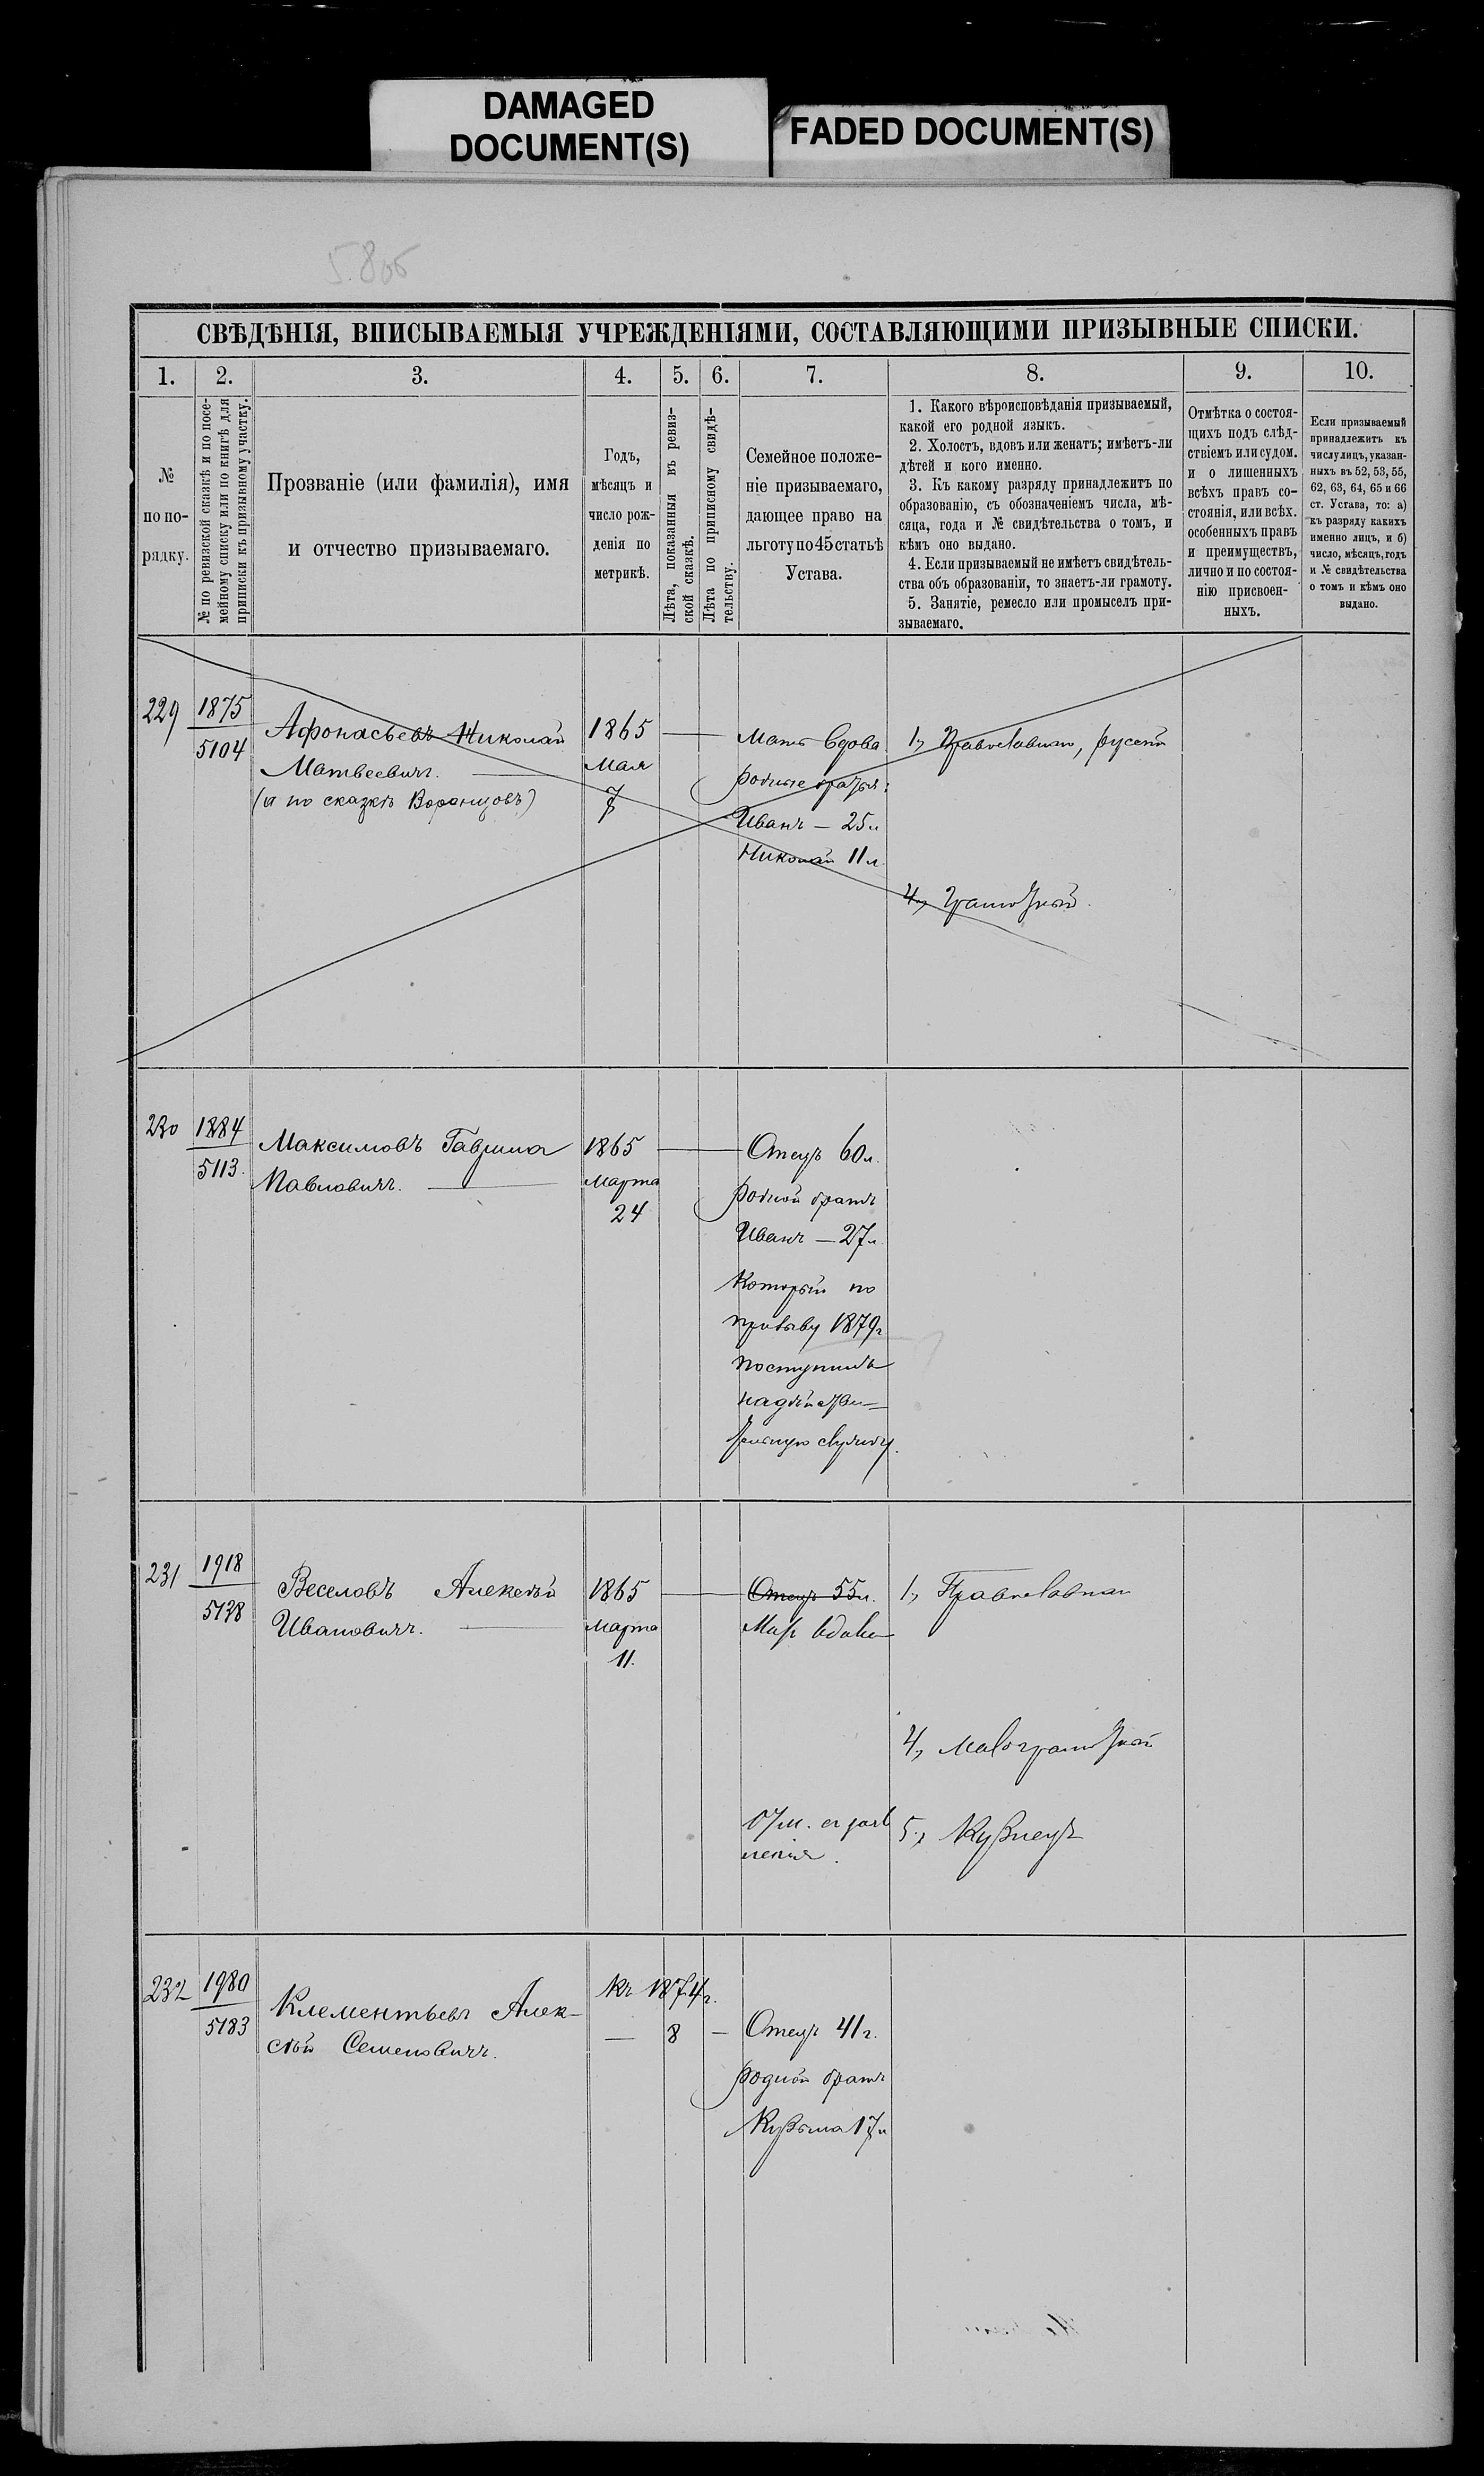 DAMAGED
DOCUMENT(S)
FADED DOCUMENT(S)
СВѢДѢНІЯ, ВПИСЫВАЕМЫЯ УЧРЕЖДЕНІЯМИ, СОСТАВЛЯЮЩИМИ ПРИЗЫВНЫЕ СПИСКИ.
1.
2.
3.
4.
5.
6.
7.
8.
9.
10.
№
по по-
рядку.
№ по ревизской сказкѣ и по посе-
мейному списку или по книгѣ для
приписки къ призывному участку.
Прозваніе (или фамилія), имя
и отчество призываемаго.
Годъ,
мѣсяцъ и
число рож-
денія по
метрикѣ.
Лѣта, показанныя въ ревиз-
ской сказкѣ.
Лѣта по приписному свидѣ-
тельству.
Семейное положе-
ніе призываемаго,
дающее право на
льготу по 45 статьѣ
Устава.
1. Какого вѣроисповѣданія призываемый,
какой его родной языкъ.
2. Холостъ, вдовъ или женатъ; имѣетъ-ли
дѣтей и кого именно.
3. Къ какому разряду принадлежитъ по
образованію, съ обозначеніемъ числа, мѣ-
сяца, года и № свидѣтельства о томъ, и
кѣмъ оно выдано.
4. Если призываемый не имѣетъ свидѣтель-
ства объ образованіи, то знаетъ-ли грамоту.
5. Занятіе, ремесло или промыселъ при-
зываемаго.
Отмѣтка о состоя-
щихъ подъ слѣд-
ствіемъ или судом.
и о лишенныхъ
всѣхъ правъ со-
стоянія, или всѣх.
особенныхъ правъ
и преимуществъ,
лично и по состоя-
нію присвоен-
ныхъ.
Если призываемый
принадлежитъ къ
числу лицъ, указан-
ныхъ въ 52, 53, 55,
62, 63, 64, 65 и 66
ст. Устава, то: а)
къ разряду какихъ
именно лицъ, и б)
число, мѣсяцъ, годъ
и № свидѣтельства
о томъ и кѣмъ оно
выдано.
229
1875
5104
Афонасьевъ Николай
Матвеевичъ.
(а по сказкѣ Воронцовъ)
1865
Мая
7
Мать вдова
родные братья:
Иванъ — 25 л
Николай 11 л.
1, Православнаго, русскій
4, Грамотный.
230
1884
5113.
Максимовъ Гаврила
Павловичъ.
1865
Марта
24
Отецъ 60 л.
родной братъ
Иванъ — 27 л.
который по
призыву 1879 г.
поступилъ
на дѣйстви-
тельную службу.
231
1918
5138
Веселовъ Алексѣй
Ивановичъ.
1865
Марта
11.
Отецъ 55 л.
Мать вдова
1, Православнаго
4, Малограмотный
5, Кузнецъ
232
1980
5183
Клементьевъ Алек-
сѣй Семеновичъ.
Къ 1874 г.
— 8 —
Отецъ 41 г.
родной братъ
Кузьма 17 л